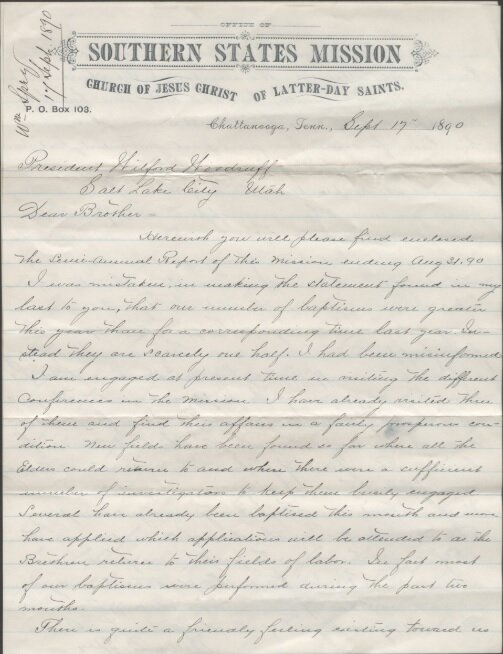 OFFICE OF
SOUTHERN STATES MISSION
CHURCH OF JESUS CHRIST OF LATTER-DAY SAINTS.
P. O. Box 103.
Wm Spry
17 Sept. 1890
Chattanooga, Tenn., Sept 17" 1890
President Wilford Woodruff
Salt Lake City Utah
Dear Brother =
Herewith you will please find enclosed
the Semi-Annual Report of this Mission ending Aug 31. 90
I was mistaken, in making the statement found in my
last to you, that our number of baptisms were greater
this year than for a corresponding time last year. In-
stead they are scarcely one half. I had been misinformed
I am engaged at present time in visiting the different
Conferences in the Mission. I have already visited three
of them and find their affairs in a fairly prosperous con-
dition New fields have been found so far where all the
Elders could return to and where there were a sufficient
number of investigators to keep them busily engaged
Several have already been baptised this month and more
have applied which applications will be attended to as the
Brethren return to their fields of labor. In fact most
of our baptisms were performed during the past two
months.
There is quite a friendly feeling existing toward us